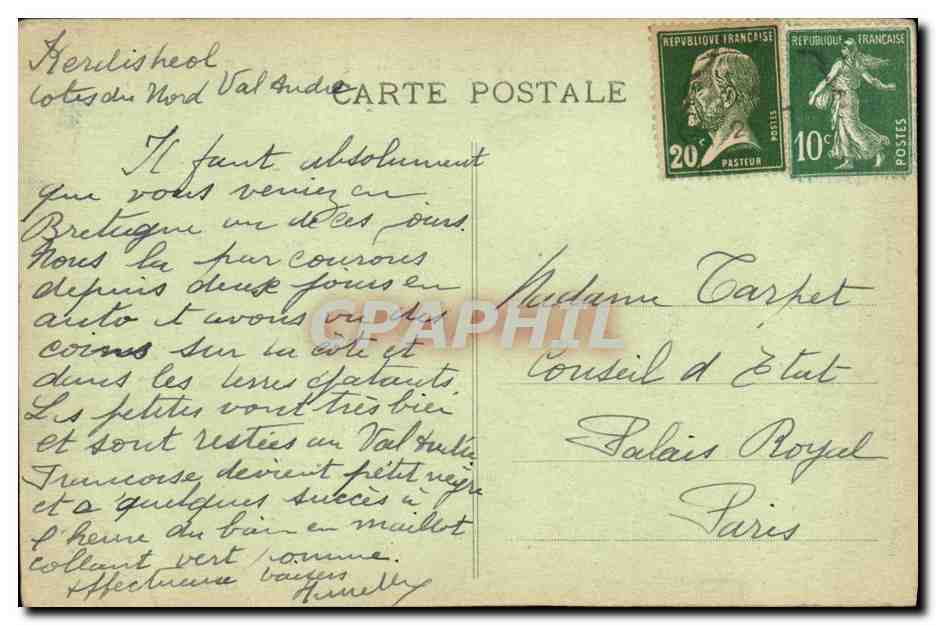 Kerdisheol
Cotes du Nord Val André
CARTE POSTALE
REPUBLIQUE FRANÇAISE
20c
POSTES
PASTEUR
REPUBLIQUE FRANÇAISE
10c
POSTES
Il faut absolument
que vous veniez en
Bretagne un de ces jours.
Nous la parcourons
depuis deux jours en
auto et avons vu des
coins sur la côte et
dans les terres épatants
Les petites vont très bien
et sont restées au Val André
Françoise devient petit nègre
et a quelques succès à
l'heure du bain en maillot
collant vert pomme.
Affectueux baisers
Madame Tarpet
Conseil d'Etat
Palais Royal
Paris
CPAPHIL